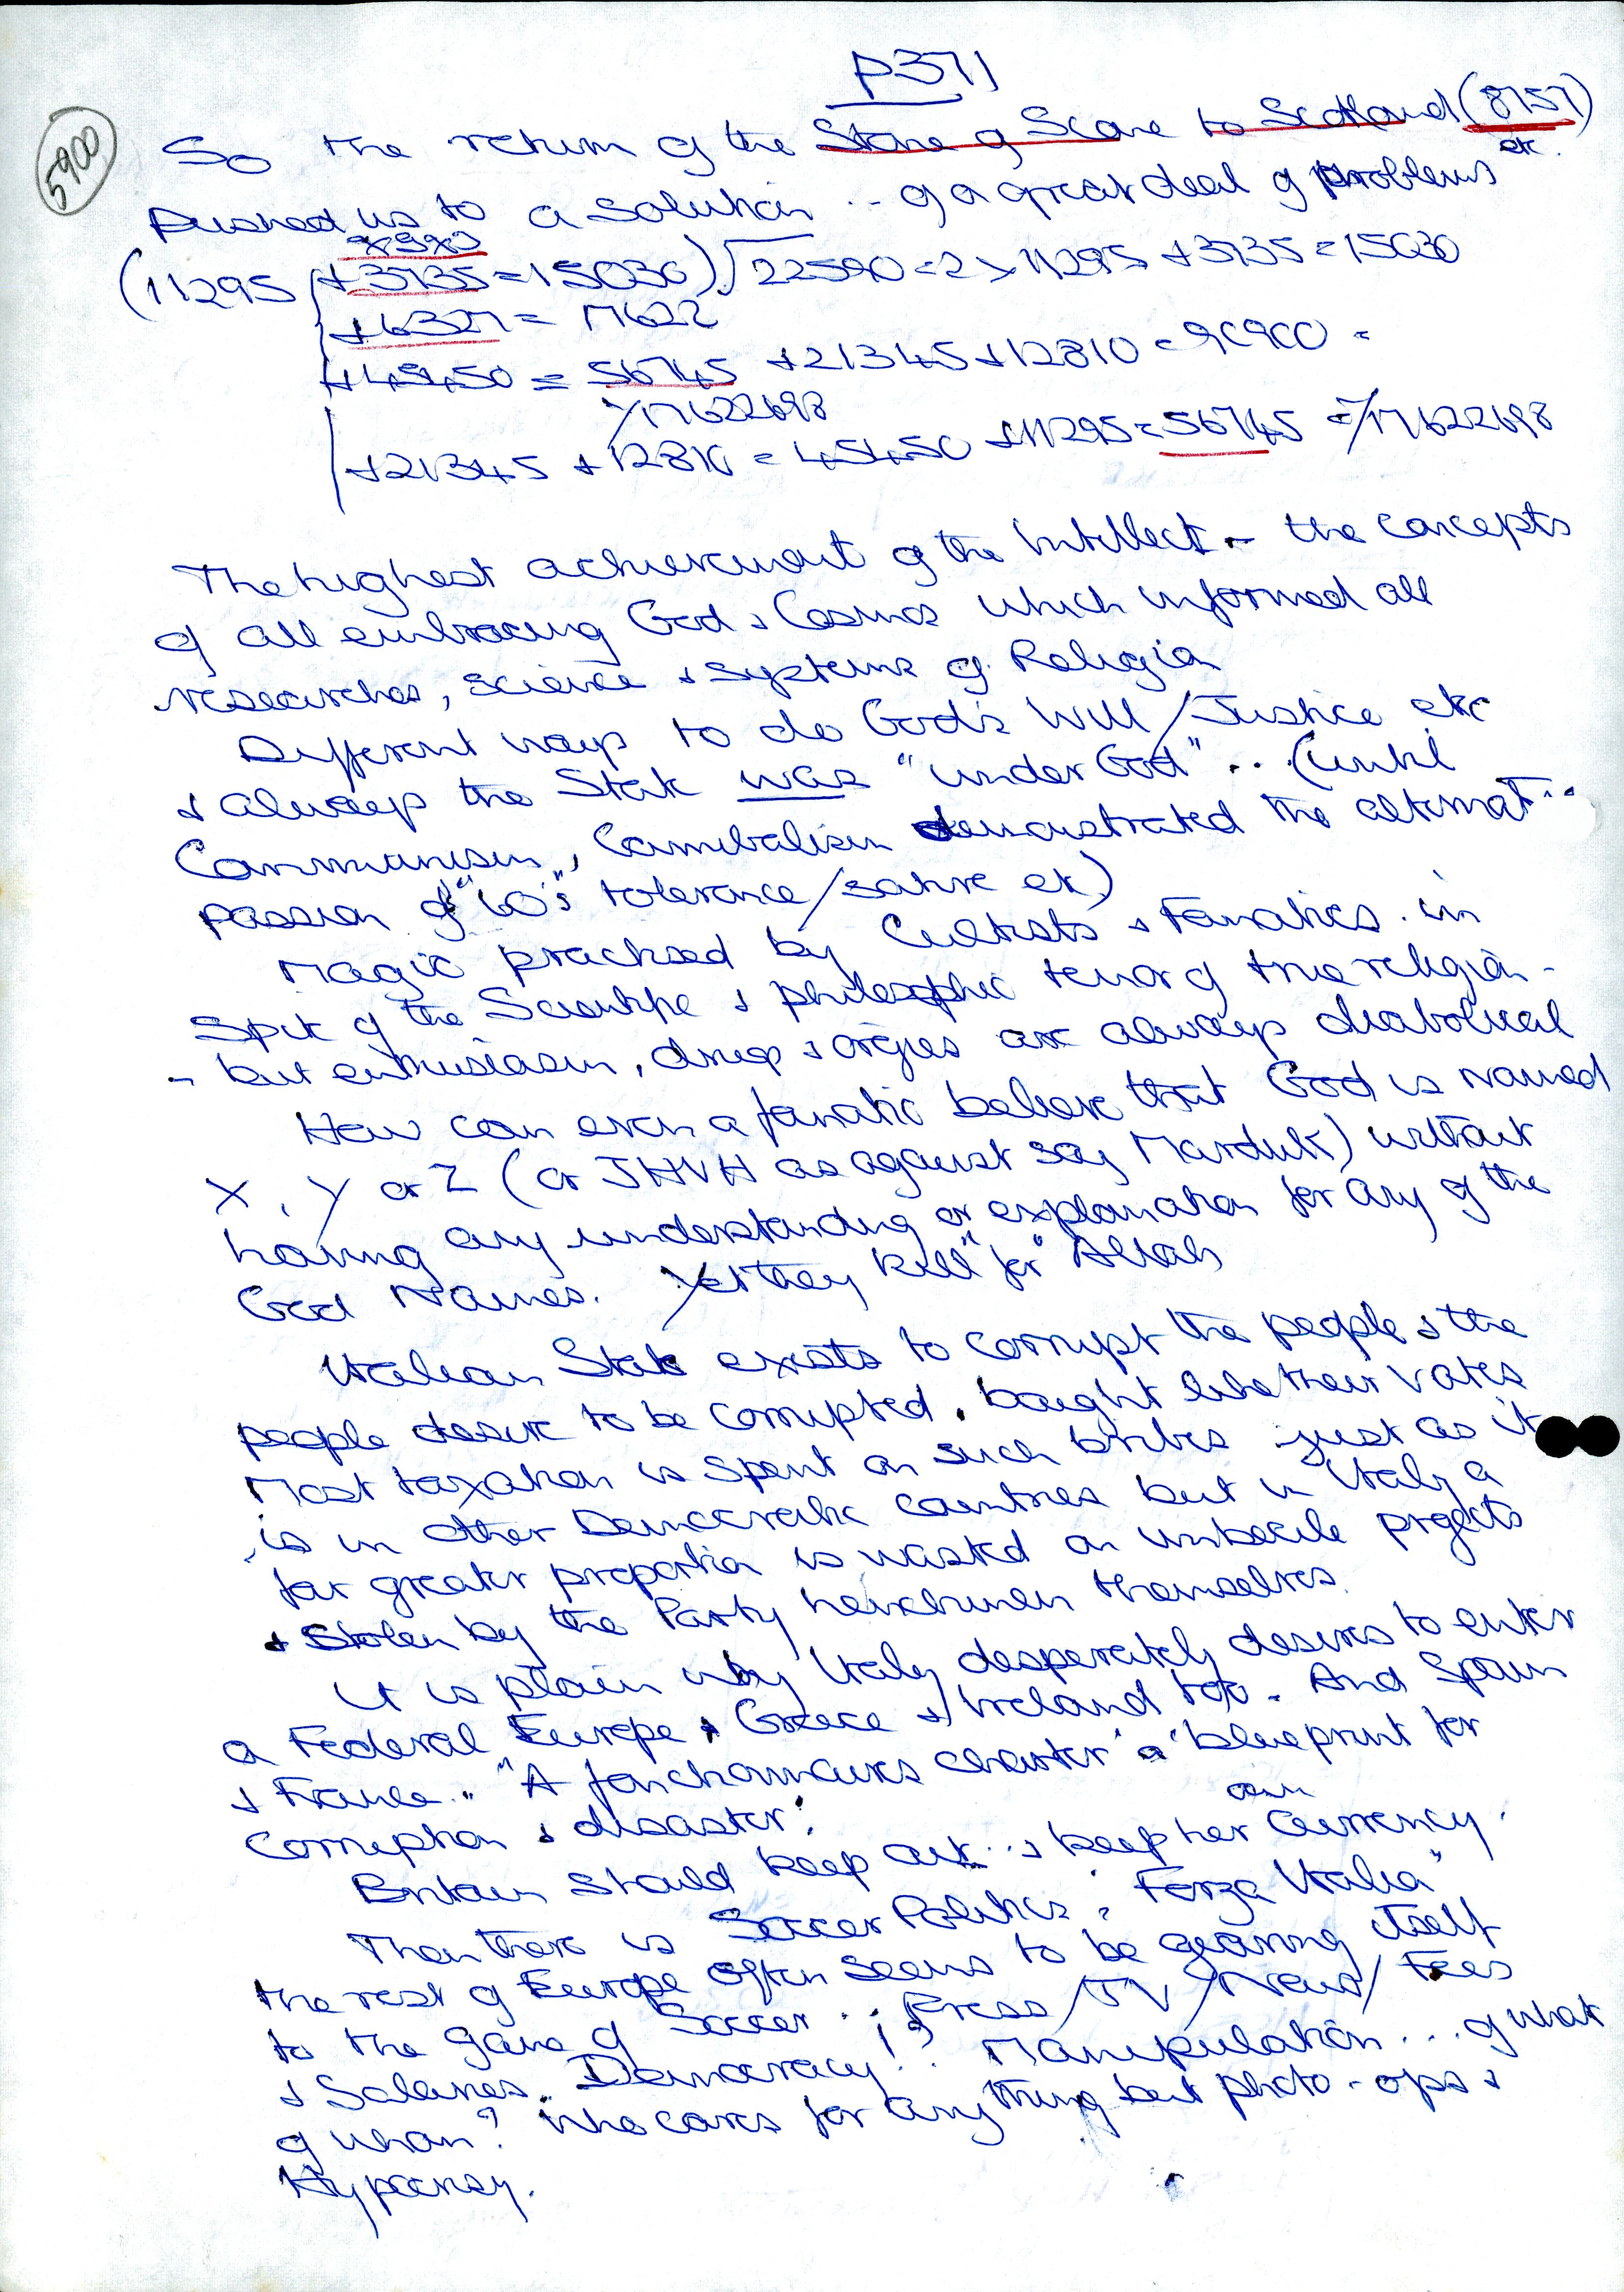 p371
5900
So the return of the Stone of Scone to Scotland (8757)
etc.
pushed us to a solution .. of a great deal of problems
(11295 +3735 = 15030) √22590 = 2 x 11295 + 3735 = 15030
+6327 = 17622
+45450 = 56745 + 21345 + 12810 = 90900 =
/17622698
+21345 + 12810 = 45450 + 11295 = 56745 = /17622698
The highest achievement of the intellect - the concepts
of all embracing God & Cosmos which informed all
researches, science & systems of Religion
Different ways to do God's Will / Justice etc
& always the State was "under God" .. (until
Communism, Cannibalism demonstrated the
passion of "60's" tolerance/satire etc)
Magic practised by Cultists & Fanatics in
spite of the Scientific & philosophic tenor of true religion -
- but enthusiasm, drugs & orgies are always diabolical
How can even a fanatic believe that God is named
X, Y or Z (or JHVH as against say Marduk) without
having any understanding or explanation for any of the
God Names. Yet they kill "for" Allah
Italian State exists to corrupt the people & the
people desire to be corrupted, bought like their votes
Most taxation is spent on such bribes just as it
is in other Democratic countries but in Italy a
far greater proportion is wasted on imbecile projects
& stolen by the Party henchmen themselves.
It is plain why Italy desperately desires to enter
a Federal Europe & Greece & Ireland too. And Spain
& France. "A functionaries charter" a "blueprint for
corruption & disaster".
own
Britain should keep out .. & keep her Currency.
Then there is Soccer Politics: "Forza Italia"
the rest of Europe often seems to be gearing itself
to the game of Soccer .. Press/TV/News/Fees
& Salaries. Democracy!? Manipulation ... of what
of whom? who cares for anything but photo-ops &
Hypocrisy.